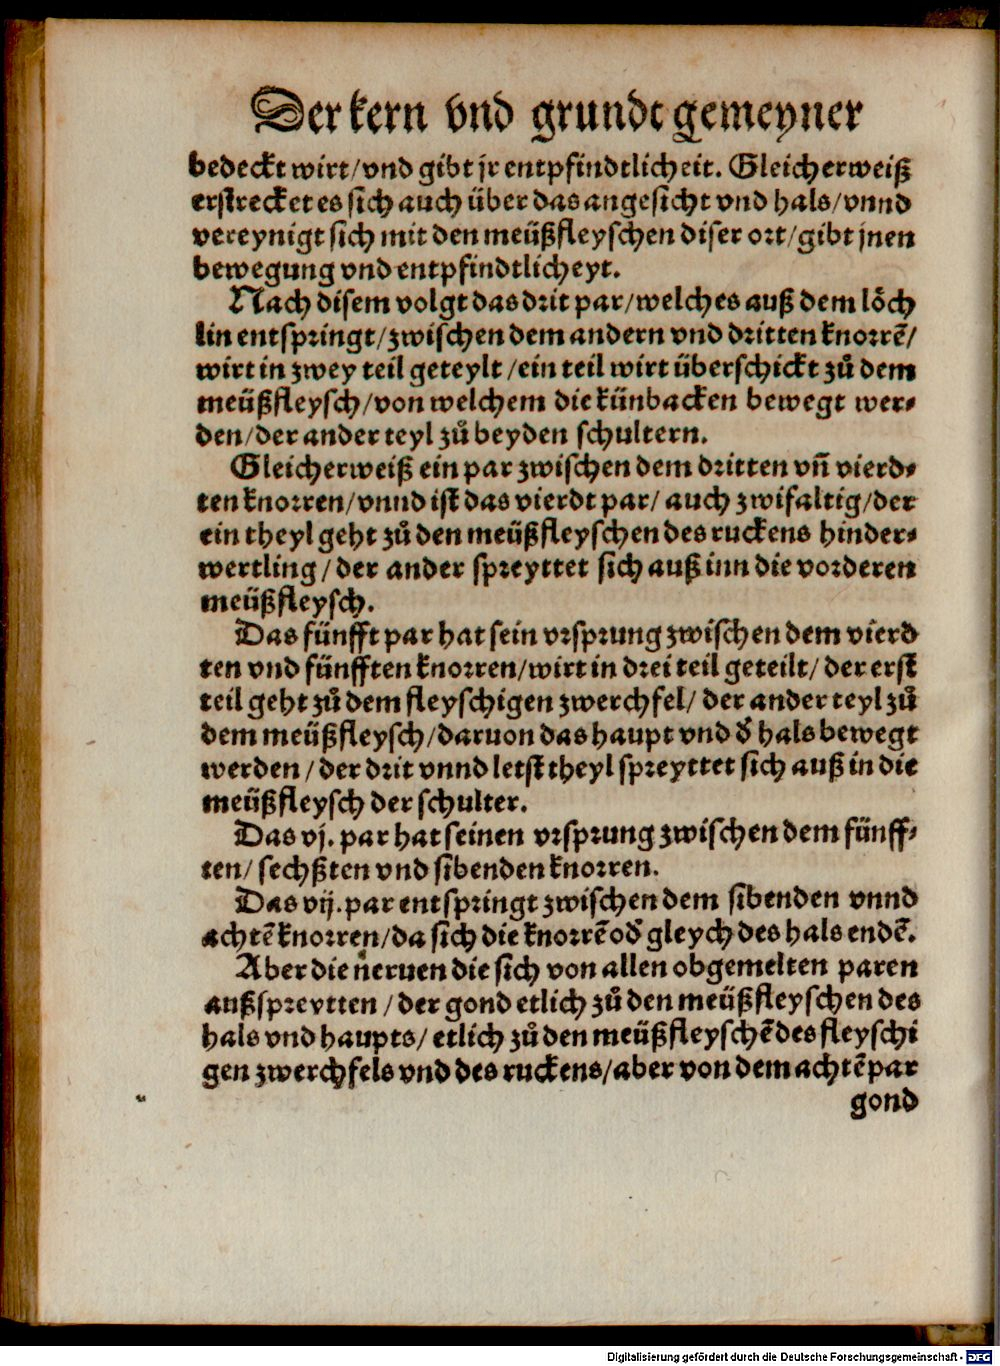 Der kern vnd grundt gemeyner
bedeckt wirt/vnd gibt jr entpfindtlicheit. Gleicherweiß
erstrecket es sich auch über das angesicht vnd hals/vnnd
vereynigt sich mit den meüßfleyschen diser ort/gibt jnen
bewegung vnd entpfindtlicheyt.
Nach disem volgt das drit par/welches auß dem löch
lin entspringt/zwischen dem andern vnd dritten knorrē/
wirt in zwey teil geteylt/ein teil wirt überschickt zů dem
meüßfleysch/von welchem die künbacken bewegt wer⸗
den/der ander teyl zů beyden schultern.
Gleicherweiß ein par zwischen dem dritten vñ vierd⸗
ten knorren/vnnd ist das vierdt par/ auch zwifaltig/der
ein theyl geht zů den meüßfleyschen des ruckens hinder⸗
wertling/der ander spreyttet sich auß inn die vorderen
meüßfleysch.
Das fünfft par hat sein vrsprung zwischen dem vierd
ten vnd fünfften knorren/wirt in drei teil geteilt/ der erst
teil geht zů dem fleyschigen zwerchfel/ der ander teyl zů
dem meüßfleysch/daruon das haupt vnd d̕ hals bewegt
werden/der drit vnnd letst theyl spreyttet sich auß in die
meüßfleysch der schulter.
Das vj. par hat seinen vrsprung zwischen dem fünff⸗
ten/ sechßten vnd sibenden knorren.
Das vij. par entspringt zwischen dem sibenden vnnd
achtē knorren/da sich die knorrē od̕ gleych des hals endē.
Aber die neruen die sich von allen obgemelten paren
außspreytten/der gond etlich zů den meüßfleyschen des
hals vnd haupts/ etlich zů den meüßfleyschē des fleyschi
gen zwerchfels vnd des ruckens/aber von dem achtē par
gond
Digitalisierung gefördert durch die Deutsche Forschungsgemeinschaft - DFG